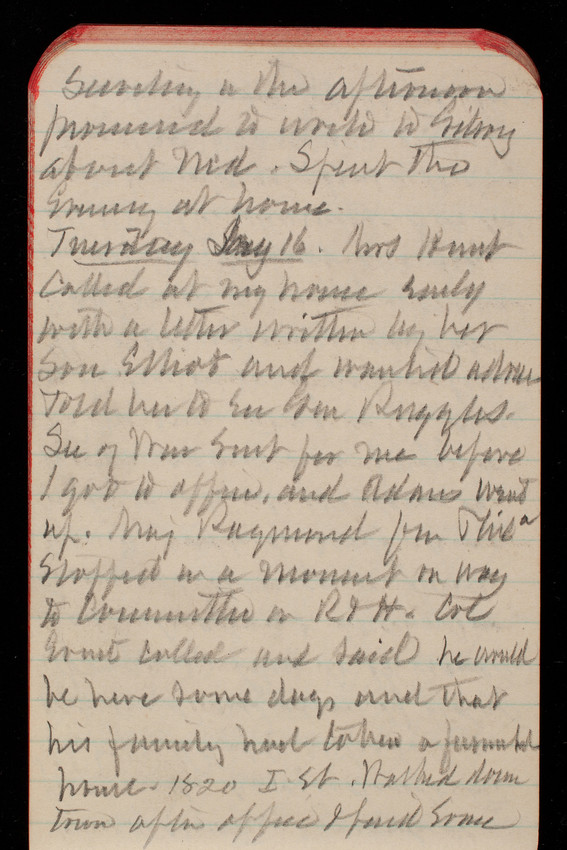 Secretary in the afternoon
promised to write to Gilroy
about Ned. Spent the
Evening at home.
Tuesday Jany 16. Mrs Hunt
Called at my house early
with a letter written by her
Son Elliot and wanted advice
Told her to See Gen Ruggles.
Sec of War Sent for me before
I got to office, and Adams went
up. Maj Raymond from Phila
Stopped in a moment on way
to Committee on R & H. Col
Ernst called and said he would
be here some days and that
his family had taken a furnished
house. 1820 I St. Walked down
town after office & paid Some